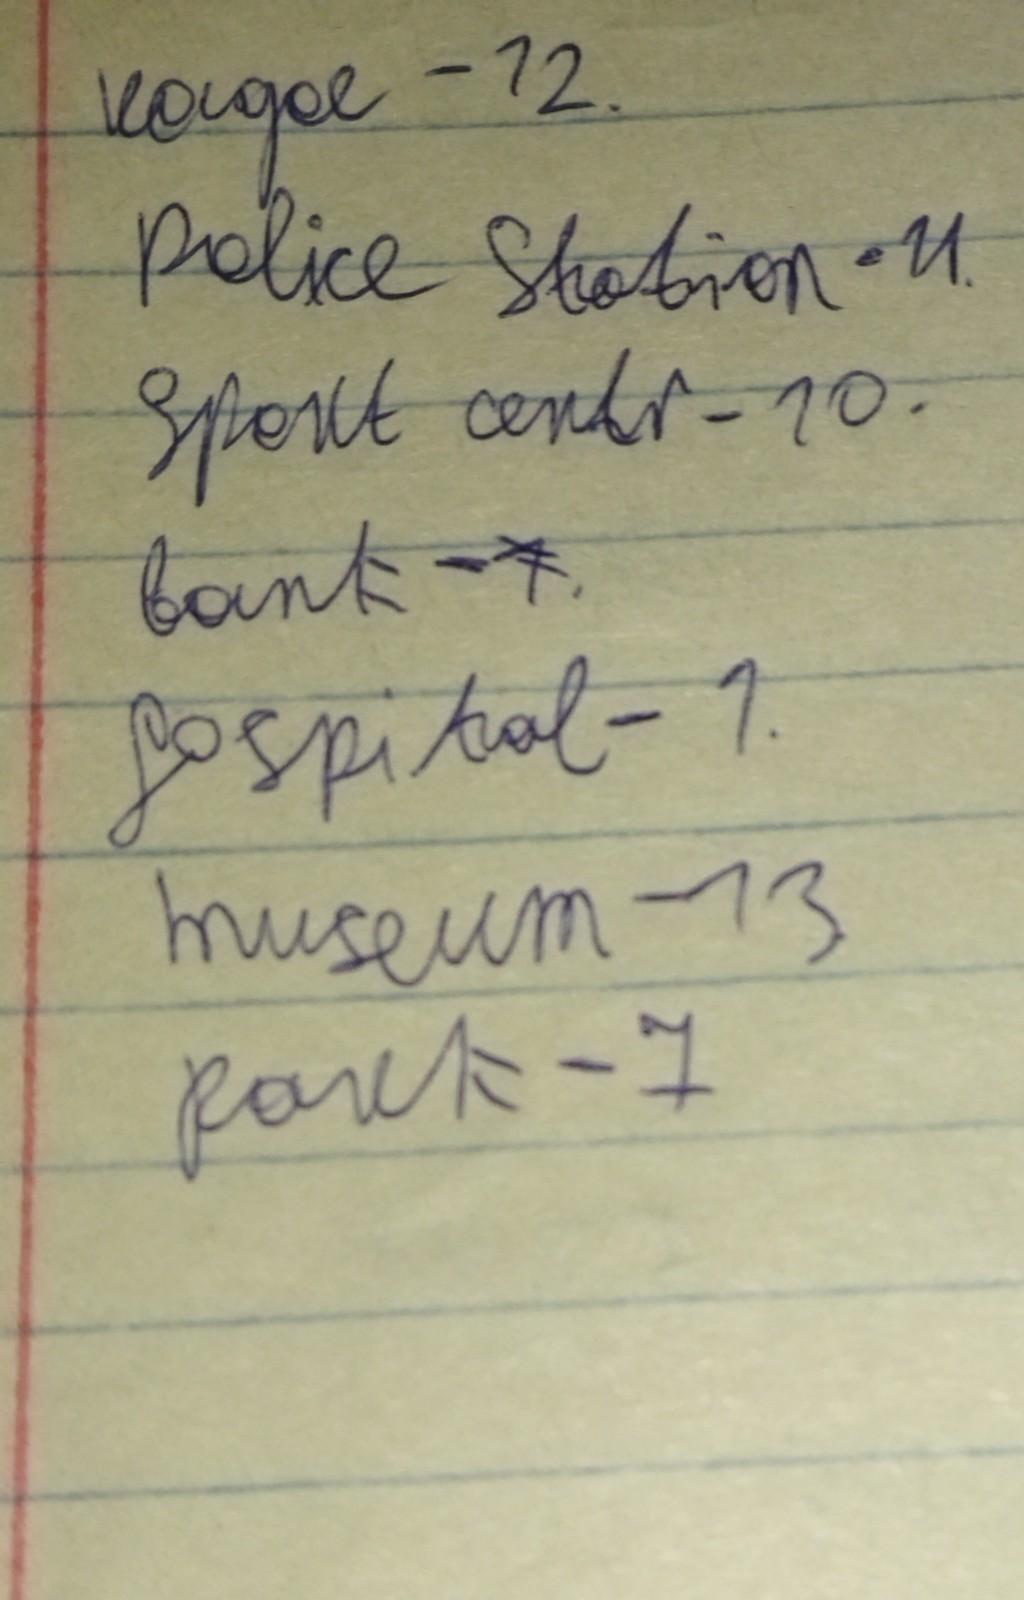 - 12.
Police Station - 11.
Sport centr - 10.
bank -
gospital - 1.
museum - 13
park - 7